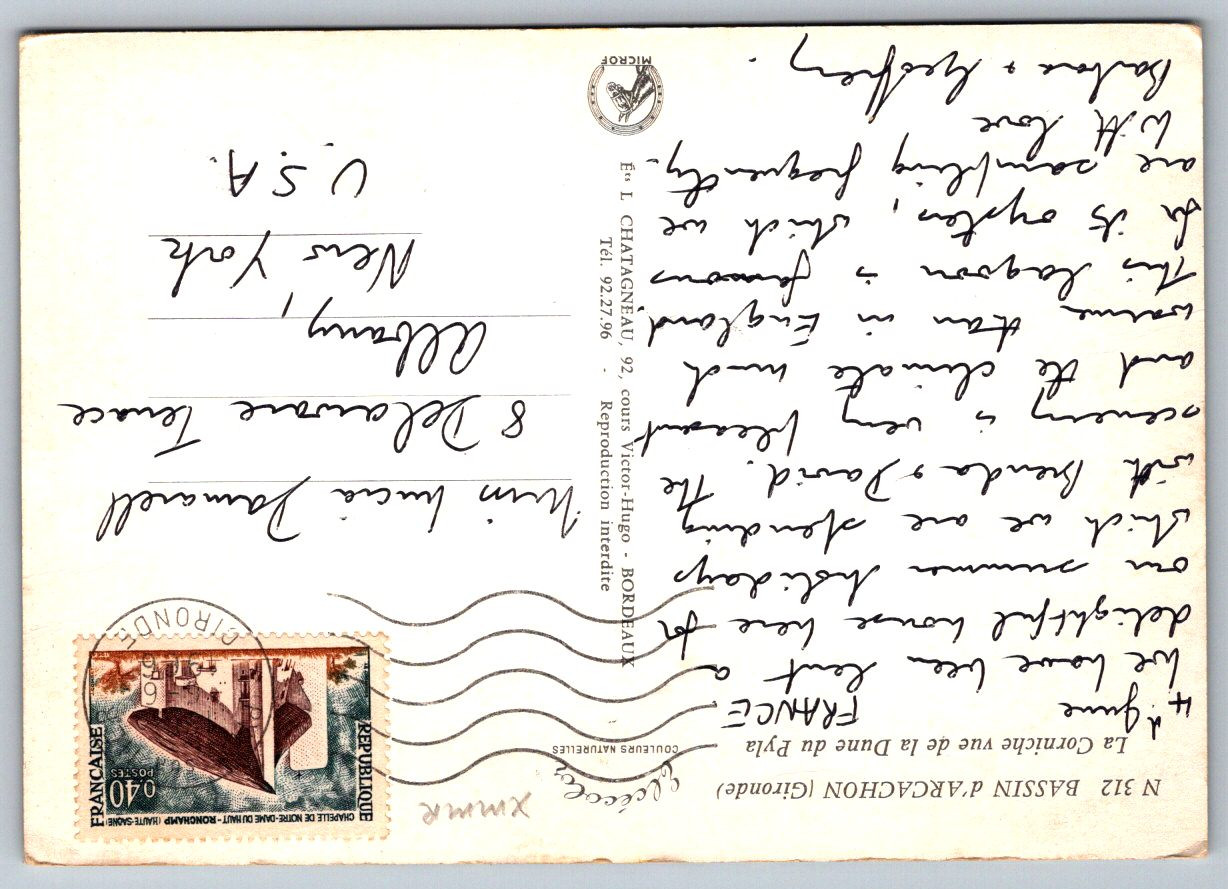 N 312 BASSIN d'ARCACHON (Gironde)
La Corniche vue de la Dune du Pyla
COULEURS NATURELLES
4th June FRANCE
We have been lent a
delightful house here for
our summer holidays
which we are spending
with Brenda & David. The
scenery is very pleasant
and the climate much
warmer than in England.
This lagoon is famous
for its oysters, which we
are sampling frequently.
With love
Barbara & Geoffrey.
Éts L CHATAGNEAU, 92, cours Victor-Hugo - BORDEAUX
Tél. 92.27.96 - Reproduction interdite
MICROF
CHAPELLE DE NOTRE-DAME DU HAUT - RONCHAMP (HAUTE-SAÔNE)
0,40
POSTES
REPUBLIQUE
FRANCAISE
GIRONDE
Miss Lucia
8 Delaware Terrace
Albany,
New York
U.S.A.